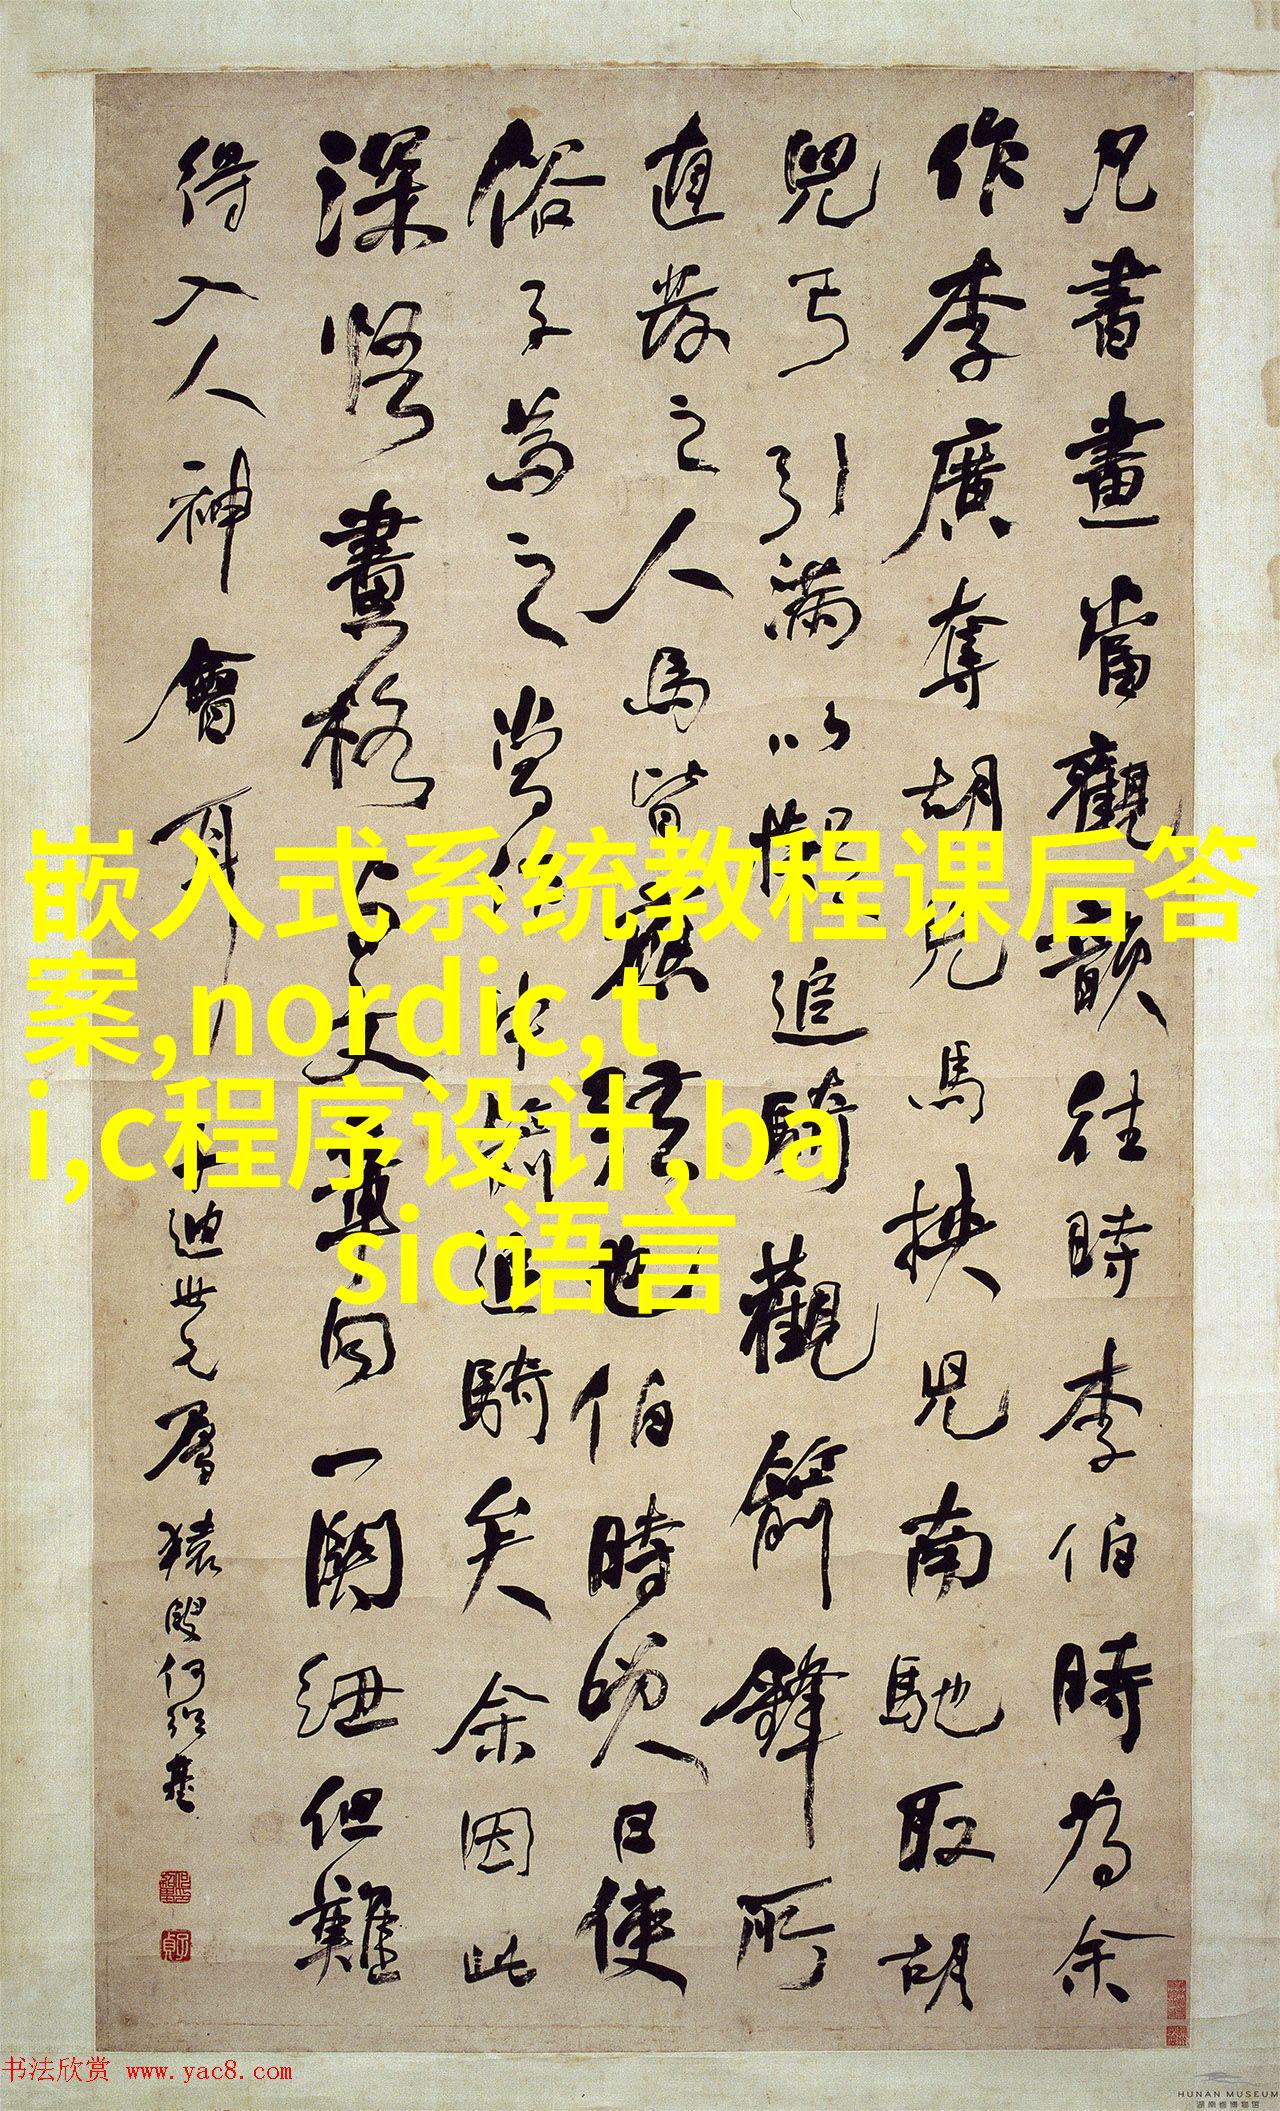 凡書畫當觀韻往時李伯時為余
作李廣奪胡兒馬挾兒南馳取胡
兒弓引滿以擬追騎觀箭鋒所
直發之人馬皆應弦也伯時笑曰使
俗子為之當作中箭追騎矣余因此
深悟畫格與文章同一關紐但難
得入人神會耳
迪世兄屬猨叟何紹基
嵌入式系统教程课后答
案,nordic,t
i,c程序设计,ba
sic语言
书法欣赏 www.yac8.com
HUNAN MUSEUM
湖南省博物馆